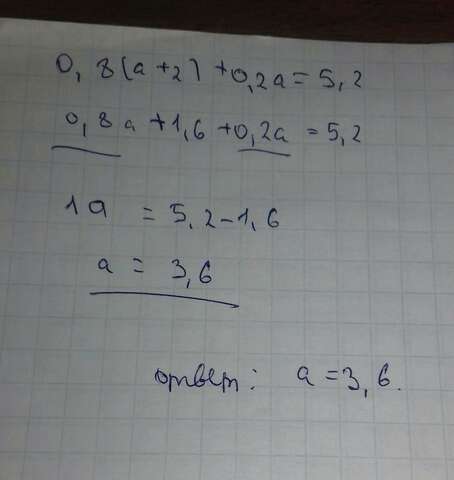 0,8(a+2)+0,2a=5,2
0,8a+1,6+0,2a=5,2
1a=5,2-1,6
a=3,6
ответ: a=3,6.